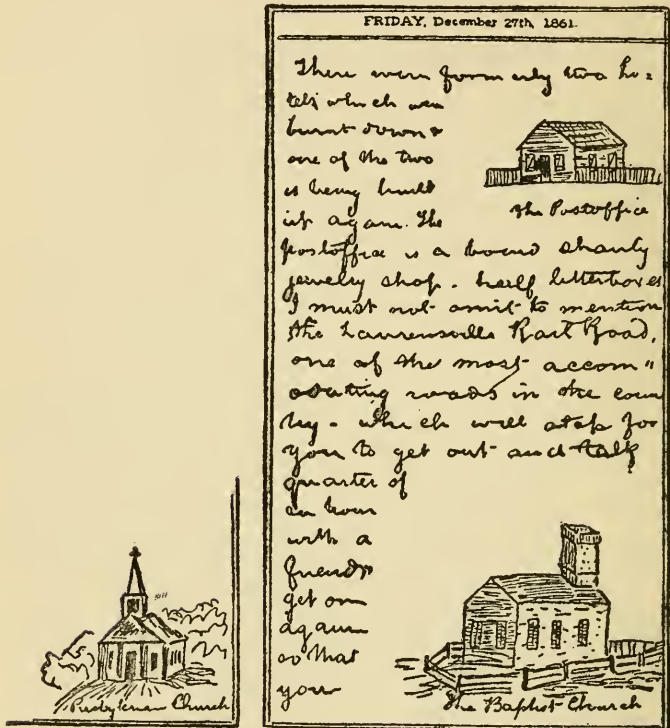 FRIDAY, December 27th, 1861.
There were formerly two ho=
tels which were
burnt down &
one of the two
is being built
up again. The
The Postoffice
postoffice is a board shanty
jewelry shop - half letterboxes
I must not omit to mention
the Laurensville Rail Road,
one of the most accom"
odating roads in the coun
try - which will stop for
you to get out and talk
quarter of
an hour
with a
friend &
get on
again
so that
you
Presbyterian Church
The Baptist Church